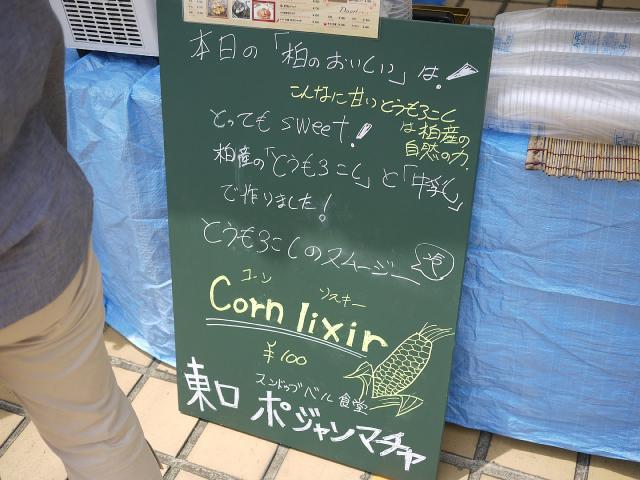 本日の「柏のおいしい」は!
こんなに甘いとうもろこし
は柏産の
自然の力.
とっても sweet!
柏産の「とうもろこし」と「牛乳」
で作りました!
とうもろこしのスムージー
コーン リスキー
Corn lixir
¥100
スンドゥブベル食堂
東口 ポジャンマチャ